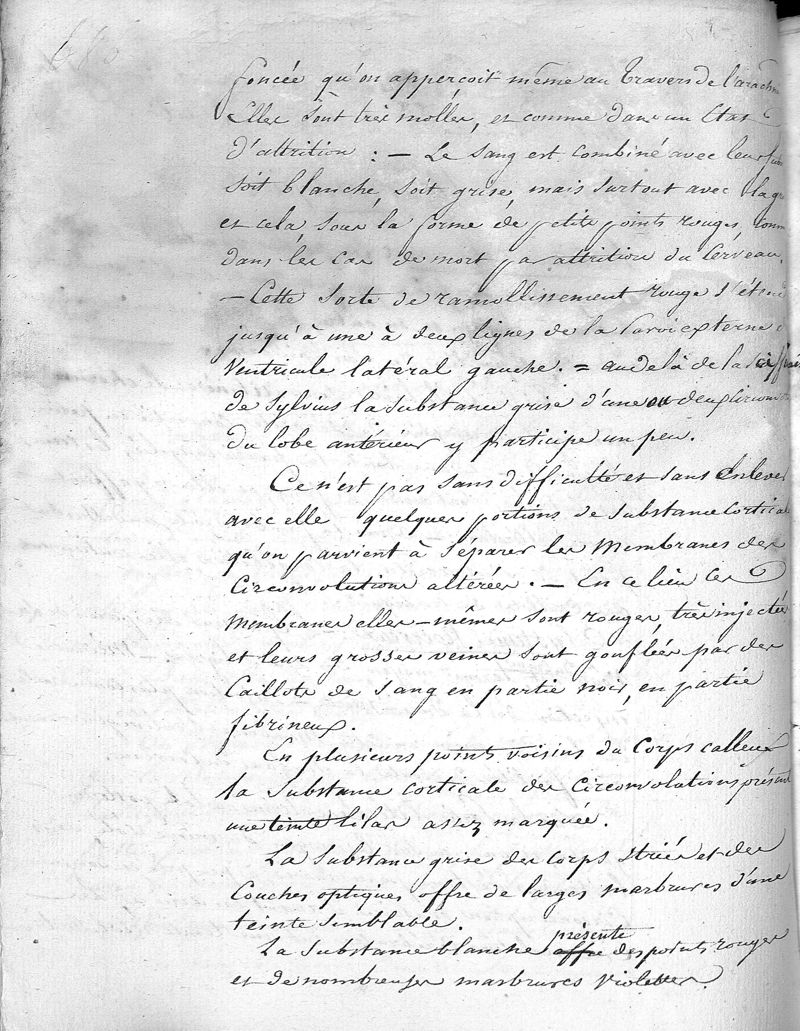 foncée qu'on apperçoit même au travers de l'arachn
Elles sont très molles, et comme dans un Etat
d'attrition : — Le sang est combiné avec leur
soit blanche, soit grise, mais surtout avec la gr
et cela, sous la forme de petits points rouges, comm
dans les cas de mort par attrition du Cerveau.
— Cette sorte de ramollissement rouge s'étend
jusqu'à une à deux lignes de la Paroi externe d
Ventricule latéral gauche. = au delà de la
de Sylvius la substance grise d'une ou deux Circonv
du lobe antérieur y participe un peu.
Ce n'est pas sans difficulté et sans Enlever
avec elle quelques portions de substance Cortical
qu'on parvient à séparer les Membranes des
Circonvolutions altérées. — En ce lieu Ces
Membranes elles-mêmes sont rouges, très injectées
et leurs grosses veines sont gonflées par des
Caillots de sang en partie noir, en partie
fibrineux.
En plusieurs points voisins du Corps calleux
la substance corticale des Circonvolutions présent
une teinte lilas assez marquée.
La substance grise des corps striés et des
Couches optiques offre de larges marbrures d'une
teinte semblable.
présente
La substance blanche offre des points rouges
et de nombreuses marbrures violettes.